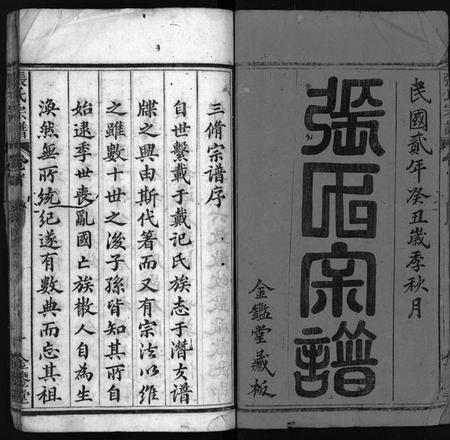 民國貳年癸丑歲季秋月
張氏宗譜
金鑑堂藏板
三脩宗谱序
自世繫載于戴记氏族志于潛夫谱
牒之興由斯代箸而又有宗法以维
之雖數十世之後子孫皆知其所自
始逮季世喪亂國亡族散人自為生
渙然無所統纪遂有數典而忘其祖
張氏宗譜
金鑑堂